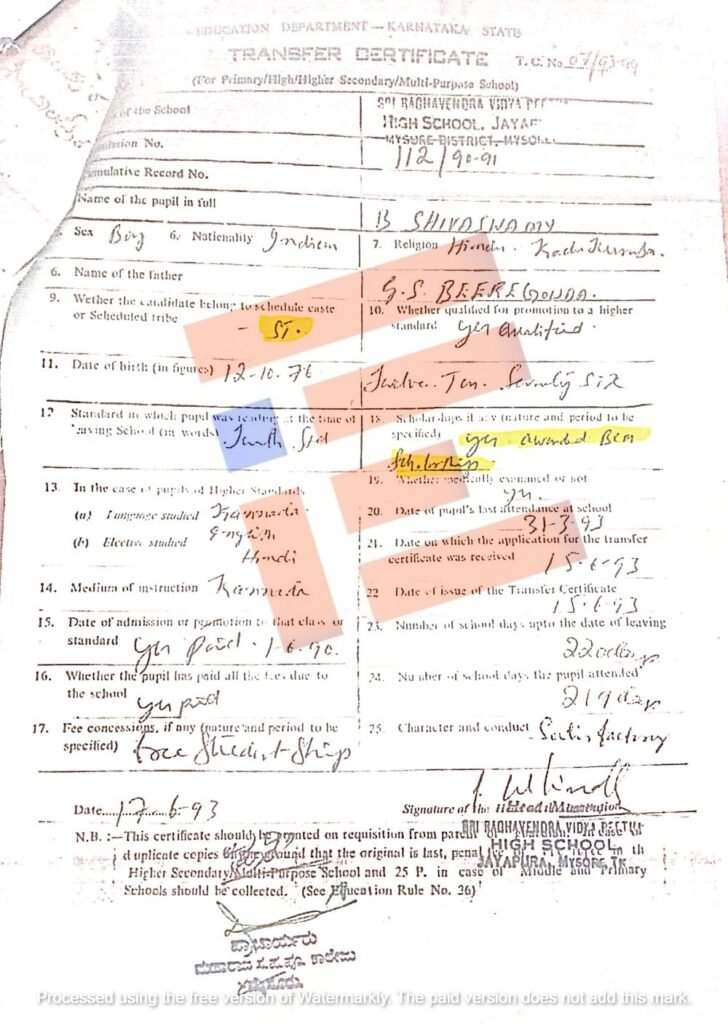 EDUCATION DEPARTMENT — KARNATAKA STATE
TRANSFER CERTIFICATE T. C. No. 07/93-94
(For Primary/High/Higher Secondary/Multi-Purpose School)
of the School SRI RAGHAVENDRA VIDYA PEETHA
HIGH SCHOOL, JAYAP
MYSORE DISTRICT, MYSORE
ission No. 112/90-91
mulative Record No.
Name of the pupil in full B SHIVASWAMY
Sex Boy 6. Nationality Indian 7. Religion Hindu. Kadu Kuruba.
6. Name of the father G.S. BEEREGOWDA.
9. Wether the candidate belong to schedule caste
or Scheduled tribe – ST.
10. Whether qualified for promotion to a higher
standard yes qualified.
11. Date of birth (in figures) 12-10-76 Twelve Ten Seventy Six
12 Standard in which pupil was reading at the time of
leaving School (in words) Tenth Std
18. Scholarships if any (nature and period to be
specified) yes awarded Bcm
Scholarship
19. Whether medically examined or not
yes.
13. In the case of pupils of Higher Standards
(a) Language studied Kannada
(b) Elective studied English
Hindi
20. Date of pupil's last attendance at school
31-3-93
21. Date on which the application for the transfer
certificate was received 15-6-93
14. Medium of instruction Kannada
22 Date of issue of the Transfer Certificate
15-6-93
15. Date of admission or promotion to that class or
standard yes paid. 1-6-90.
23. Number of school days upto the date of leaving
220days
16. Whether the pupil has paid all the fees due to
the school yes paid
24. Number of school days the pupil attended
219days
17. Fee concessions, if any (nature and period to be
specified) free
25. Character and conduct Satisfactory
Date 17-6-93
Signature of the Head of the Institution
SRI RAGHAVENDRA VIDYA PEETHA
HIGH SCHOOL,
JAYAPURA, MYSORE TK
N.B. :—This certificate should be granted on requisition from
duplicate copies on the ground that the original is last, penal
Higher Secondary/Multi-Purpose School and 25 P. in case of Middle and Primary
Schools should be collected. (See Education Rule No. 36)
ಪ್ರಾಚಾರ್ಯರು
ಮಹಾರಾಜ ಸ.ಪ.ಪೂ. ಕಾಲೇಜು
ಮೈಸೂರು
Processed using the free version of Watermarkly. The paid version does not add this mark.